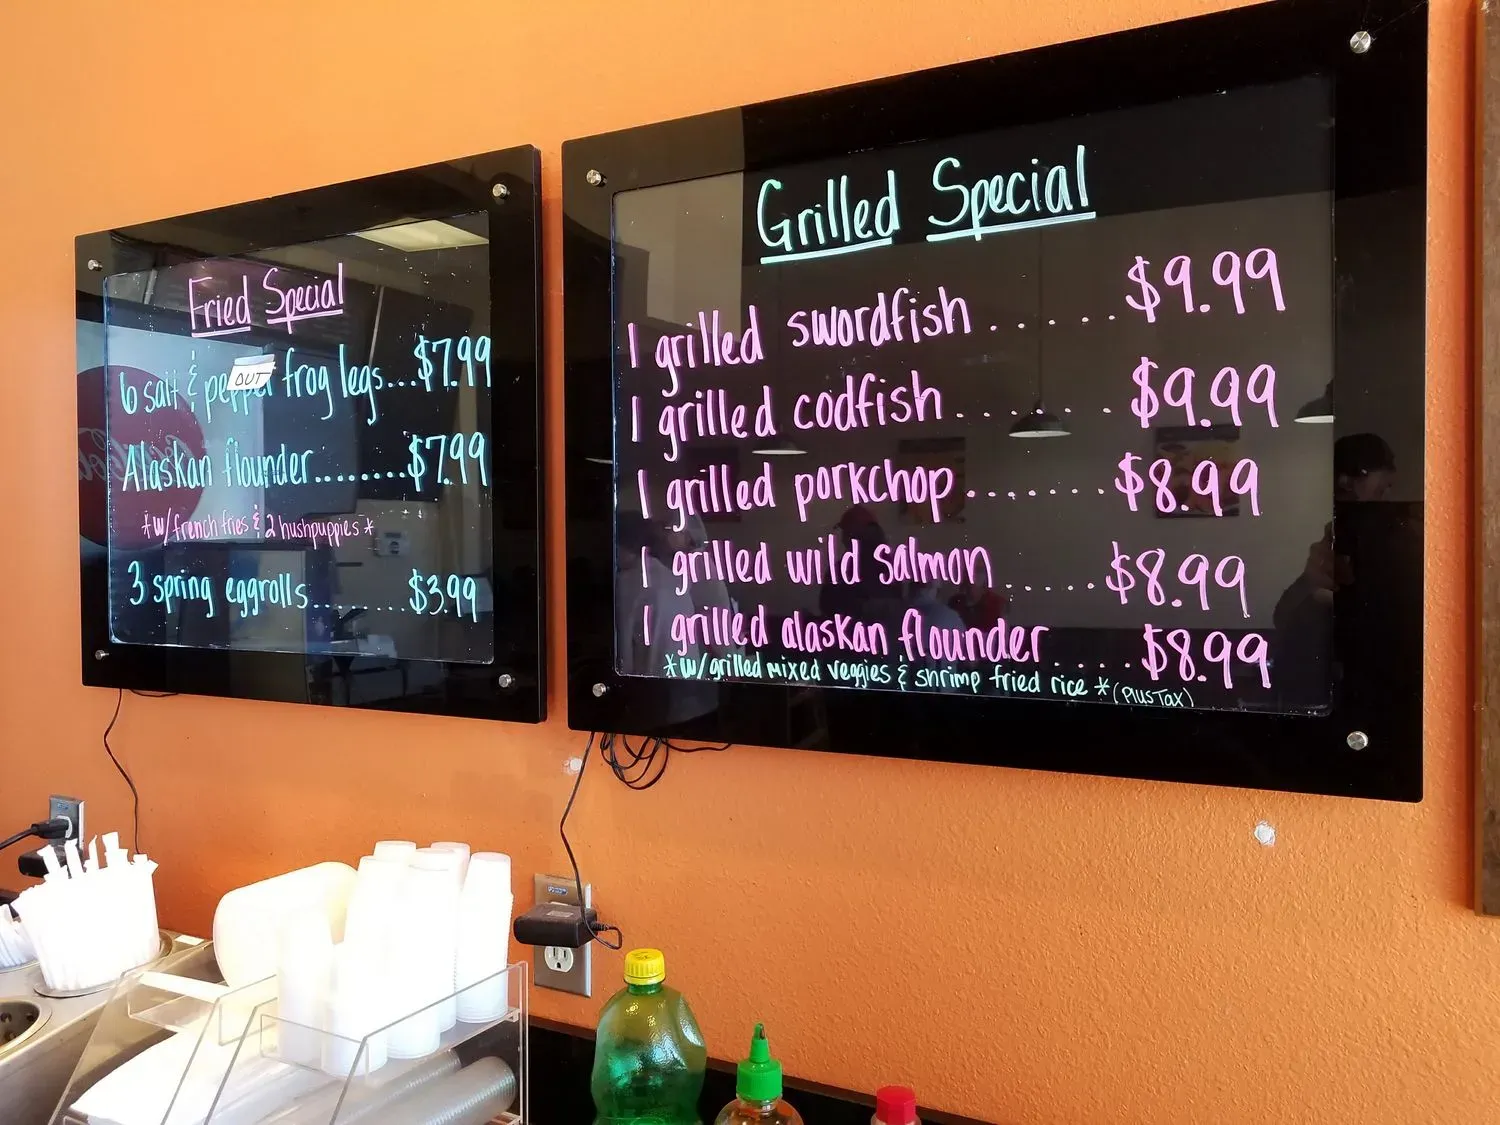 Fried Special
6 salt & pepper frog legs...$7.99
OUT
Alaskan flounder........$7.99
*w/french fries & 2 hushpuppies*
3 spring eggrolls.........$3.99
Grilled Special
1 grilled swordfish......$9.99
1 grilled codfish.......$9.99
1 grilled porkchop.......$8.99
1 grilled wild salmon.....$8.99
1 grilled alaskan flounder....$8.99
*w/grilled mixed veggies & shrimp fried rice *(Plus Tax)